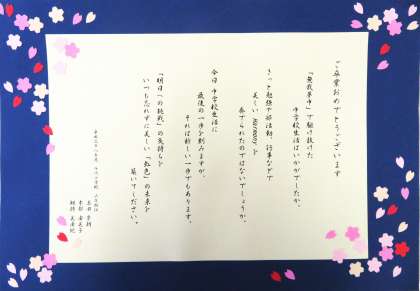 ご卒業おめでとうございます
「無我夢中」で駆け抜けた
中学校生活はいかがでしたか。
きっと勉強や部活動、行事などで
美しい Harmony を
奏でられたのではないでしょうか。
今日 中学校生活に
最後の一歩を刻みますが、
それは新しい一歩でもあります。
「明日への挑戦」の気持ちを
いつも忘れずに美しい「虹色」の未来を
築いてください。